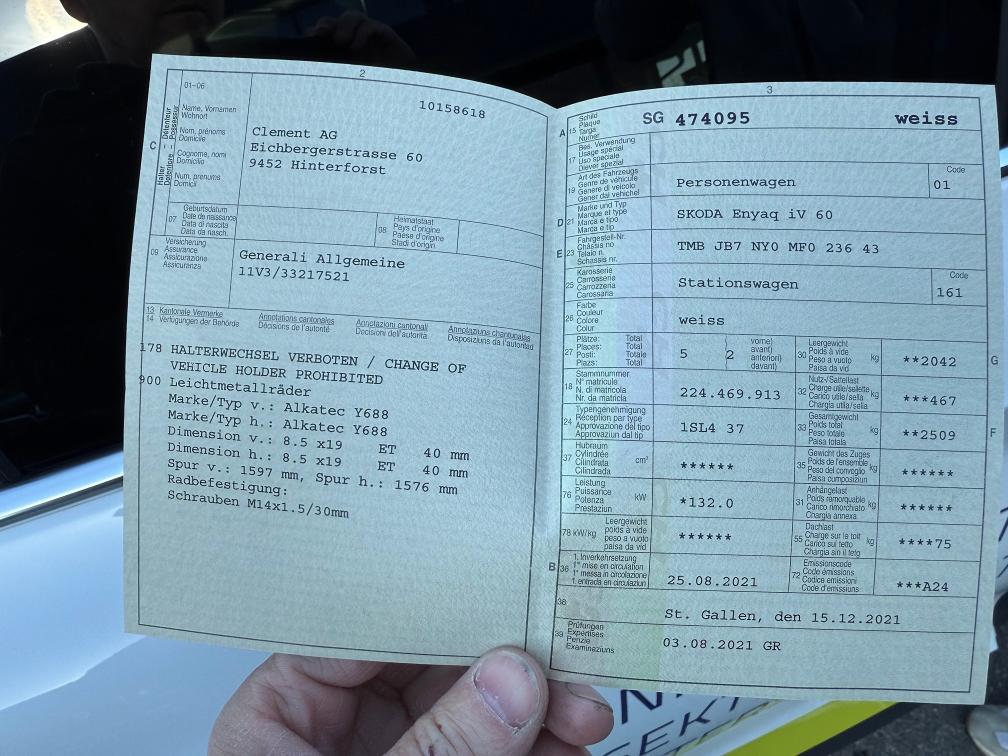 2
01-06
10158618
Name, Vornamen
Wohnort
Nom, prénoms
Domicile
Cognome, nomi
Domicilio
Num, prenums
Domicil
C
Halter
Détenteur
Detentore
Possessur
Clement AG
Eichbergerstrasse 60
9452 Hinterforst
07
Geburtsdatum
Date de naissance
Data di nascita
Data da nasch.
08
Heimatstaat
Pays d'origine
Paese d'origine
Stadi d'origin.
09
Versicherung
Assurance
Assicurazione
Assicuranza
Generali Allgemeine
11V3/33217521
13 Kantonale Vermerke
14 Verfügungen der Behörde
Annotations cantonales
Décisions de l'autorité
Annotazioni cantonali
Decisioni dell'autorità
Annotaziuns chantunalas
Disposiziuns da l'autoritad
178 HALTERWECHSEL VERBOTEN / CHANGE OF
VEHICLE HOLDER PROHIBITED
900 Leichtmetallräder
Marke/Typ v.: Alkatec Y688
Marke/Typ h.: Alkatec Y688
Dimension v.: 8.5 x19 ET 40 mm
Dimension h.: 8.5 x19 ET 40 mm
Spur v.: 1597 mm, Spur h.: 1576 mm
Radbefestigung:
Schrauben M14x1.5/30mm
3
A 15
Schild
Plaque
Targa
Numer
SG 474095 weiss
17
Bes. Verwendung
Usage spécial
Uso speciale
Diever spezial
19
Art des Fahrzeugs
Genre de véhicule
Genere di veicolo
Gener dal vehichel
Personenwagen
Code
01
D 21
Marke und Typ
Marque et type
Marca e tipo
Marca e tip
SKODA Enyaq iV 60
E 23
Fahrgestell-Nr.
Châssis no
Telaio n.
Schassis nr.
TMB JB7 NY0 MF0 236 43
25
Karosserie
Carrosserie
Carrozzeria
Carossaria
Stationswagen
Code
161
26
Farbe
Couleur
Colore
Colur
weiss
27
Plätze: Total
Places: Total
Posti: Totale
Plazs: Total
5
2
vorne)
avant)
anteriori)
davant)
30
Leergewicht
Poids à vide
Peso a vuoto
Paisa da vid
kg
**2042
G
18
Stammnummer
N° matricule
N. di matricola
Nr. da matricla
224.469.913
32
Nutz-/Sattellast
Charge utile/sellette
Carico utile/sella
Chargia utila/sella
kg
***467
24
Typengenehmigung
Réception par type
Approvazione del tipo
Approvaziun dal tip
1SL4 37
33
Gesamtgewicht
Poids total
Peso totale
Paisa totala
kg
**2509
F
37
Hubraum
Cylindrée
Cilindrata
Cilindrada
cm³
******
35
Gewicht des Zuges
Poids de l'ensemble
Peso del convoglio
Paisa cumposiziun
kg
******
76
Leistung
Puissance
Potenza
Prestaziun
kW
*132.0
31
Anhängelast
Poids remorquable
Carico rimorchiato
Chargia annexa
kg
******
78 kW/kg
Leergewicht
poids à vide
peso a vuoto
paisa da vid
******
55
Dachlast
Charge sur le toit
Carico sul tetto
Chargia sin il tetg
kg
****75
B 36
1. Inverkehrsetzung
1re mise en circulation
1a messa in circolazione
1. entrada en circulaziun
25.08.2021
72
Emissionscode
Code émissions
Codice emissioni
Code d'emissiuns
***A24
38
St. Gallen, den 15.12.2021
39
Prüfungen
Expertises
Perizie
Examinaziuns
03.08.2021 GR